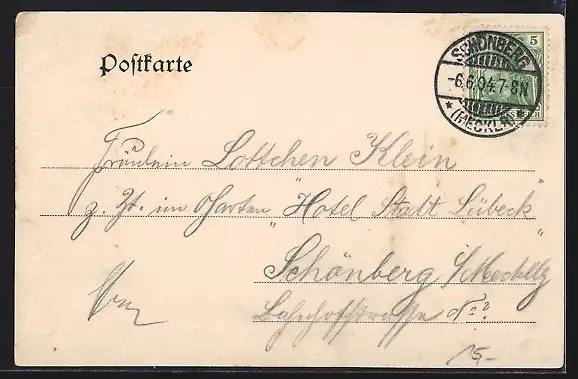 Postkarte
SCHÖNBERG
-6.6.04.7-8N
* (MECKLB) *
5
Fräulein Lottchen Klein
z. Zt. im Garten "Hotel Stadt Lübeck"
Schönberg i/Mecklbg
Bahnhofstrasse No ?
15-